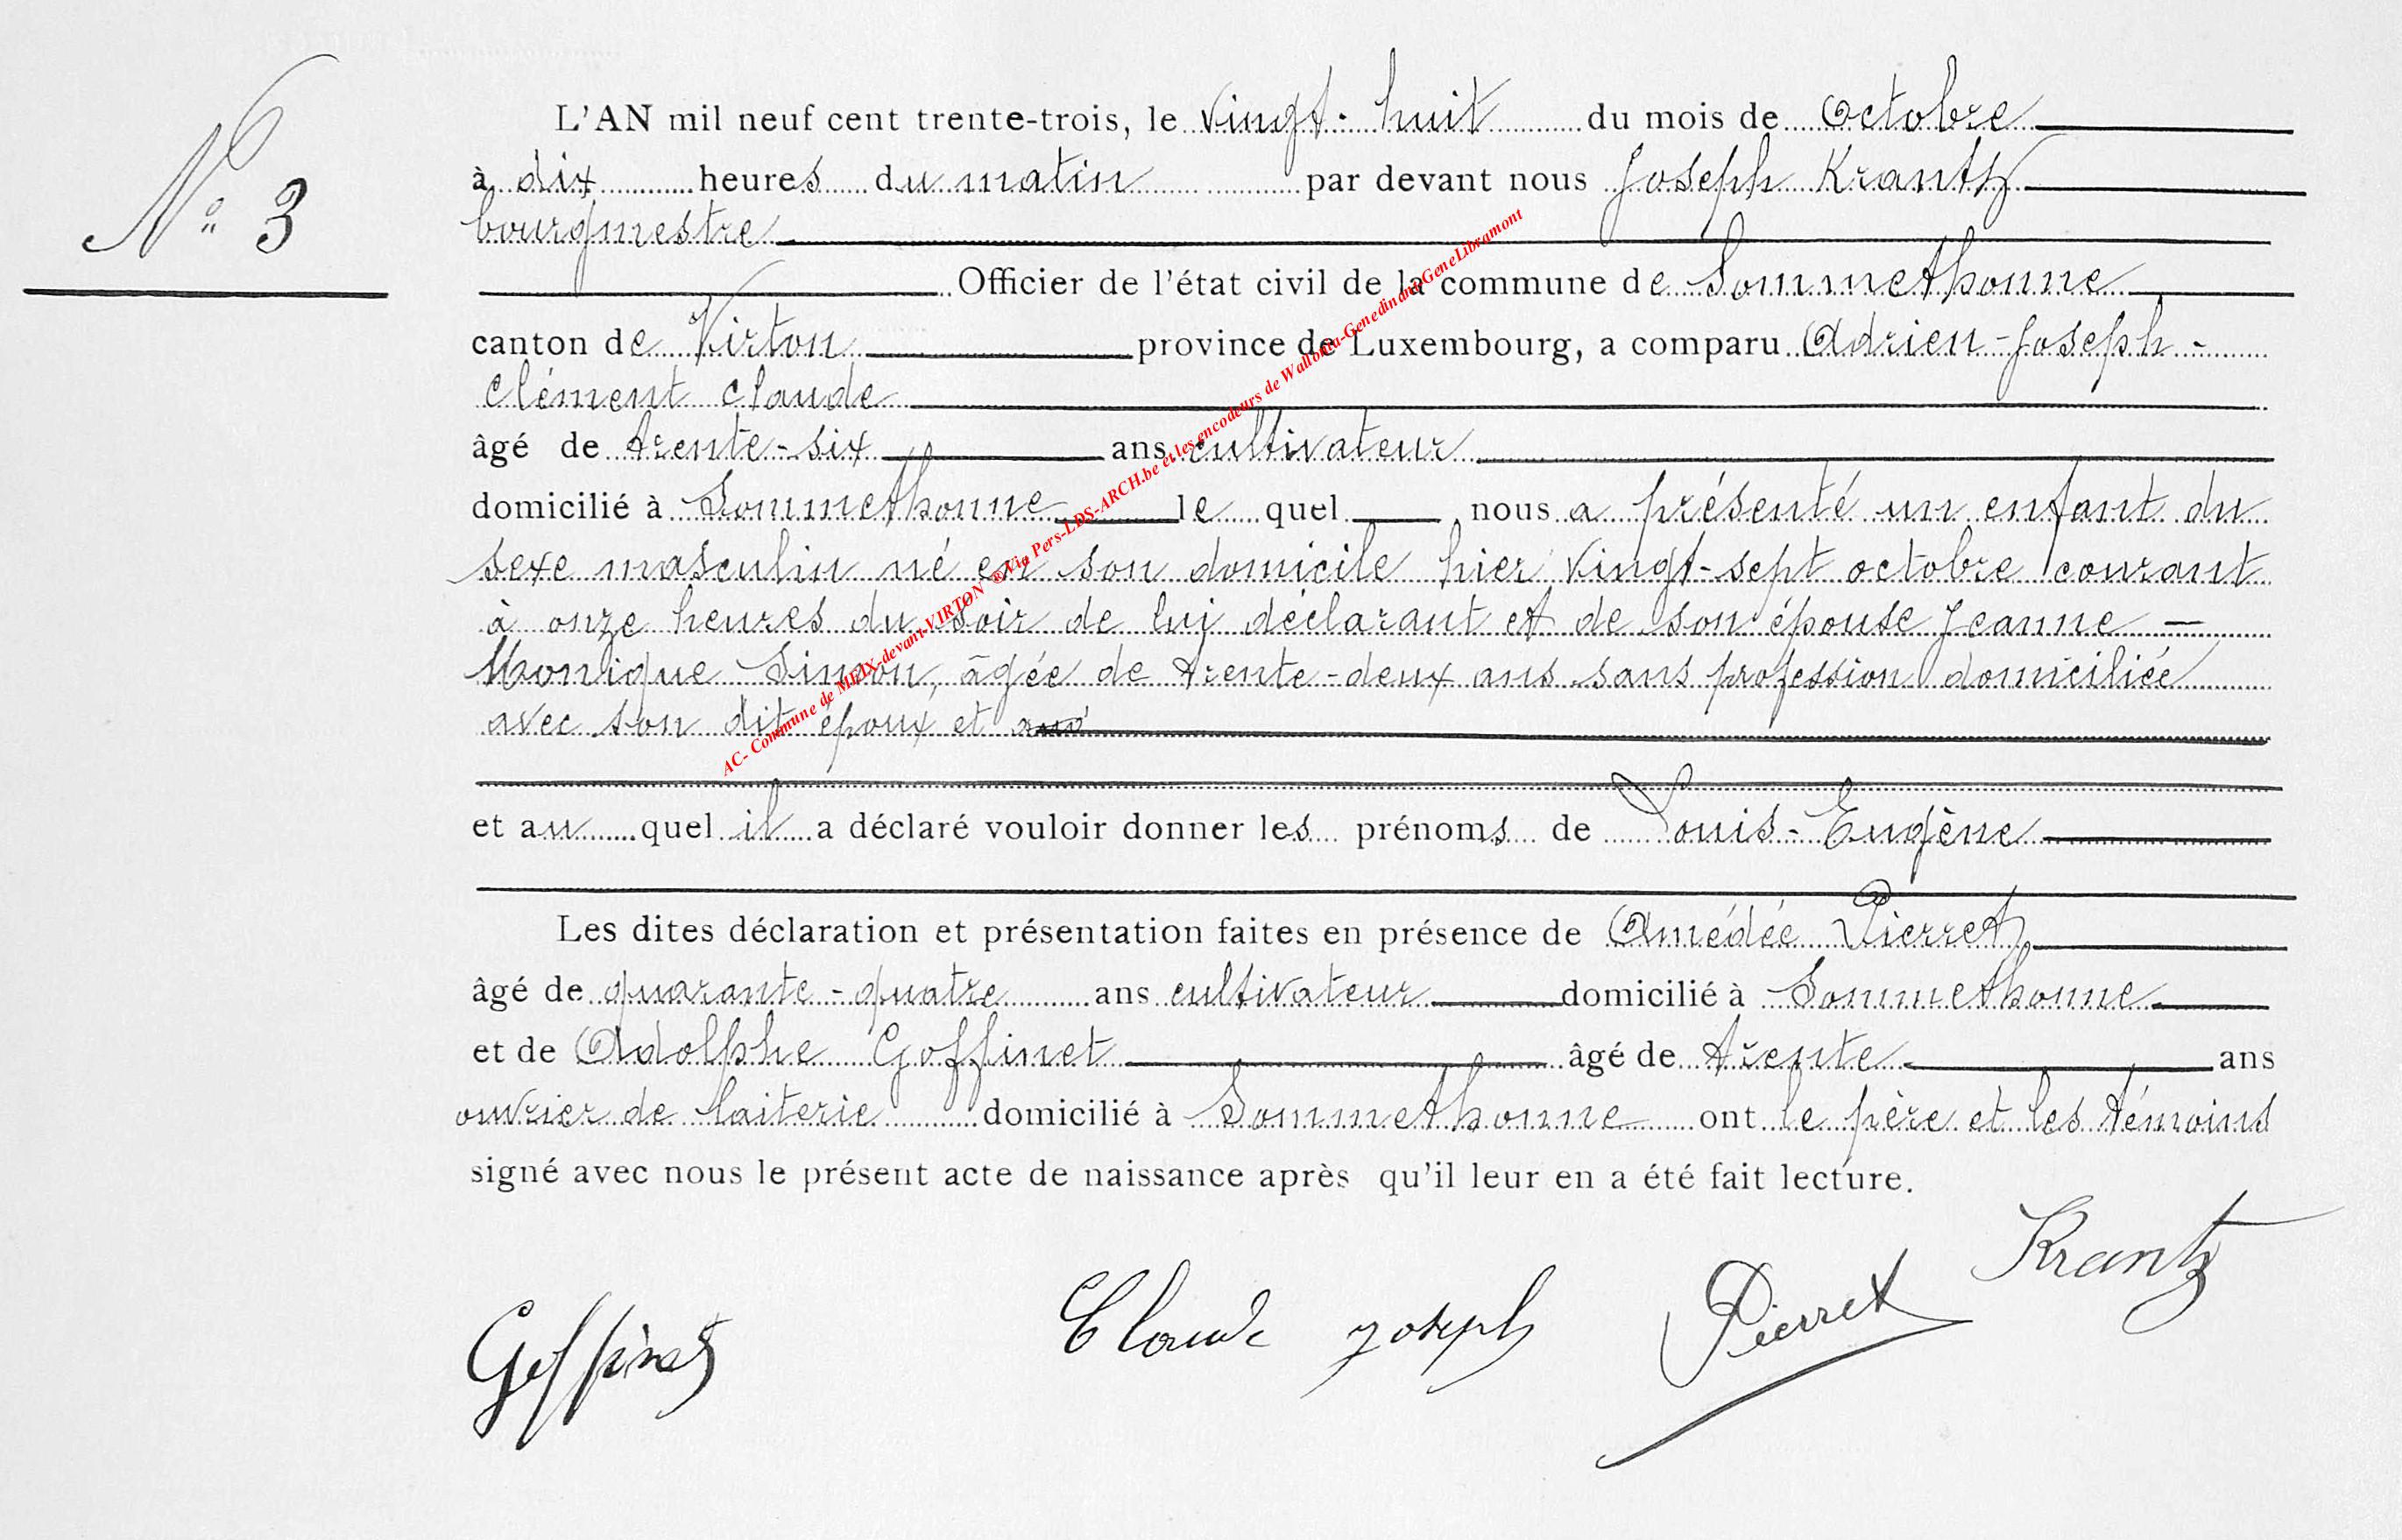 N° 3
L'AN mil neuf cent trente-trois, le vingt-huit du mois de Octobre
à dix heures du matin par devant nous Joseph Krantz
bourgmestre
Officier de l'état civil de la commune de Sommethonne
canton de Virton province de Luxembourg, a comparu Adrien-Joseph-
Clément Claude
âgé de trente-six ans cultivateur
domicilié à Sommethonne lequel nous a présenté un enfant du
sexe masculin né en son domicile hier vingt-sept octobre courant
à onze heures du soir de lui déclarant et de son épouse Jeanne —
Monique Simon, âgée de trente-deux ans sans profession domiciliée
avec son dit époux et
et au quel il a déclaré vouloir donner les prénoms de Louis-Eugène
Les dites déclaration et présentation faites en présence de Amédée Pierret
âgé de quarante-quatre ans cultivateur domicilié à Sommethonne
et de Adolphe Goffinet âgé de trente ans
ouvrier de laiterie domicilié à Sommethonne ont le père et les témoins
signé avec nous le présent acte de naissance après qu'il leur en a été fait lecture.
Krantz
Goffinet Claude Joseph Pierret
AC- Commune de MEIX-devant-VIRTON ®Via Pers-LDS-ARCH.be et les encodeurs de Wallonia-Genedinant-GeneLibramont